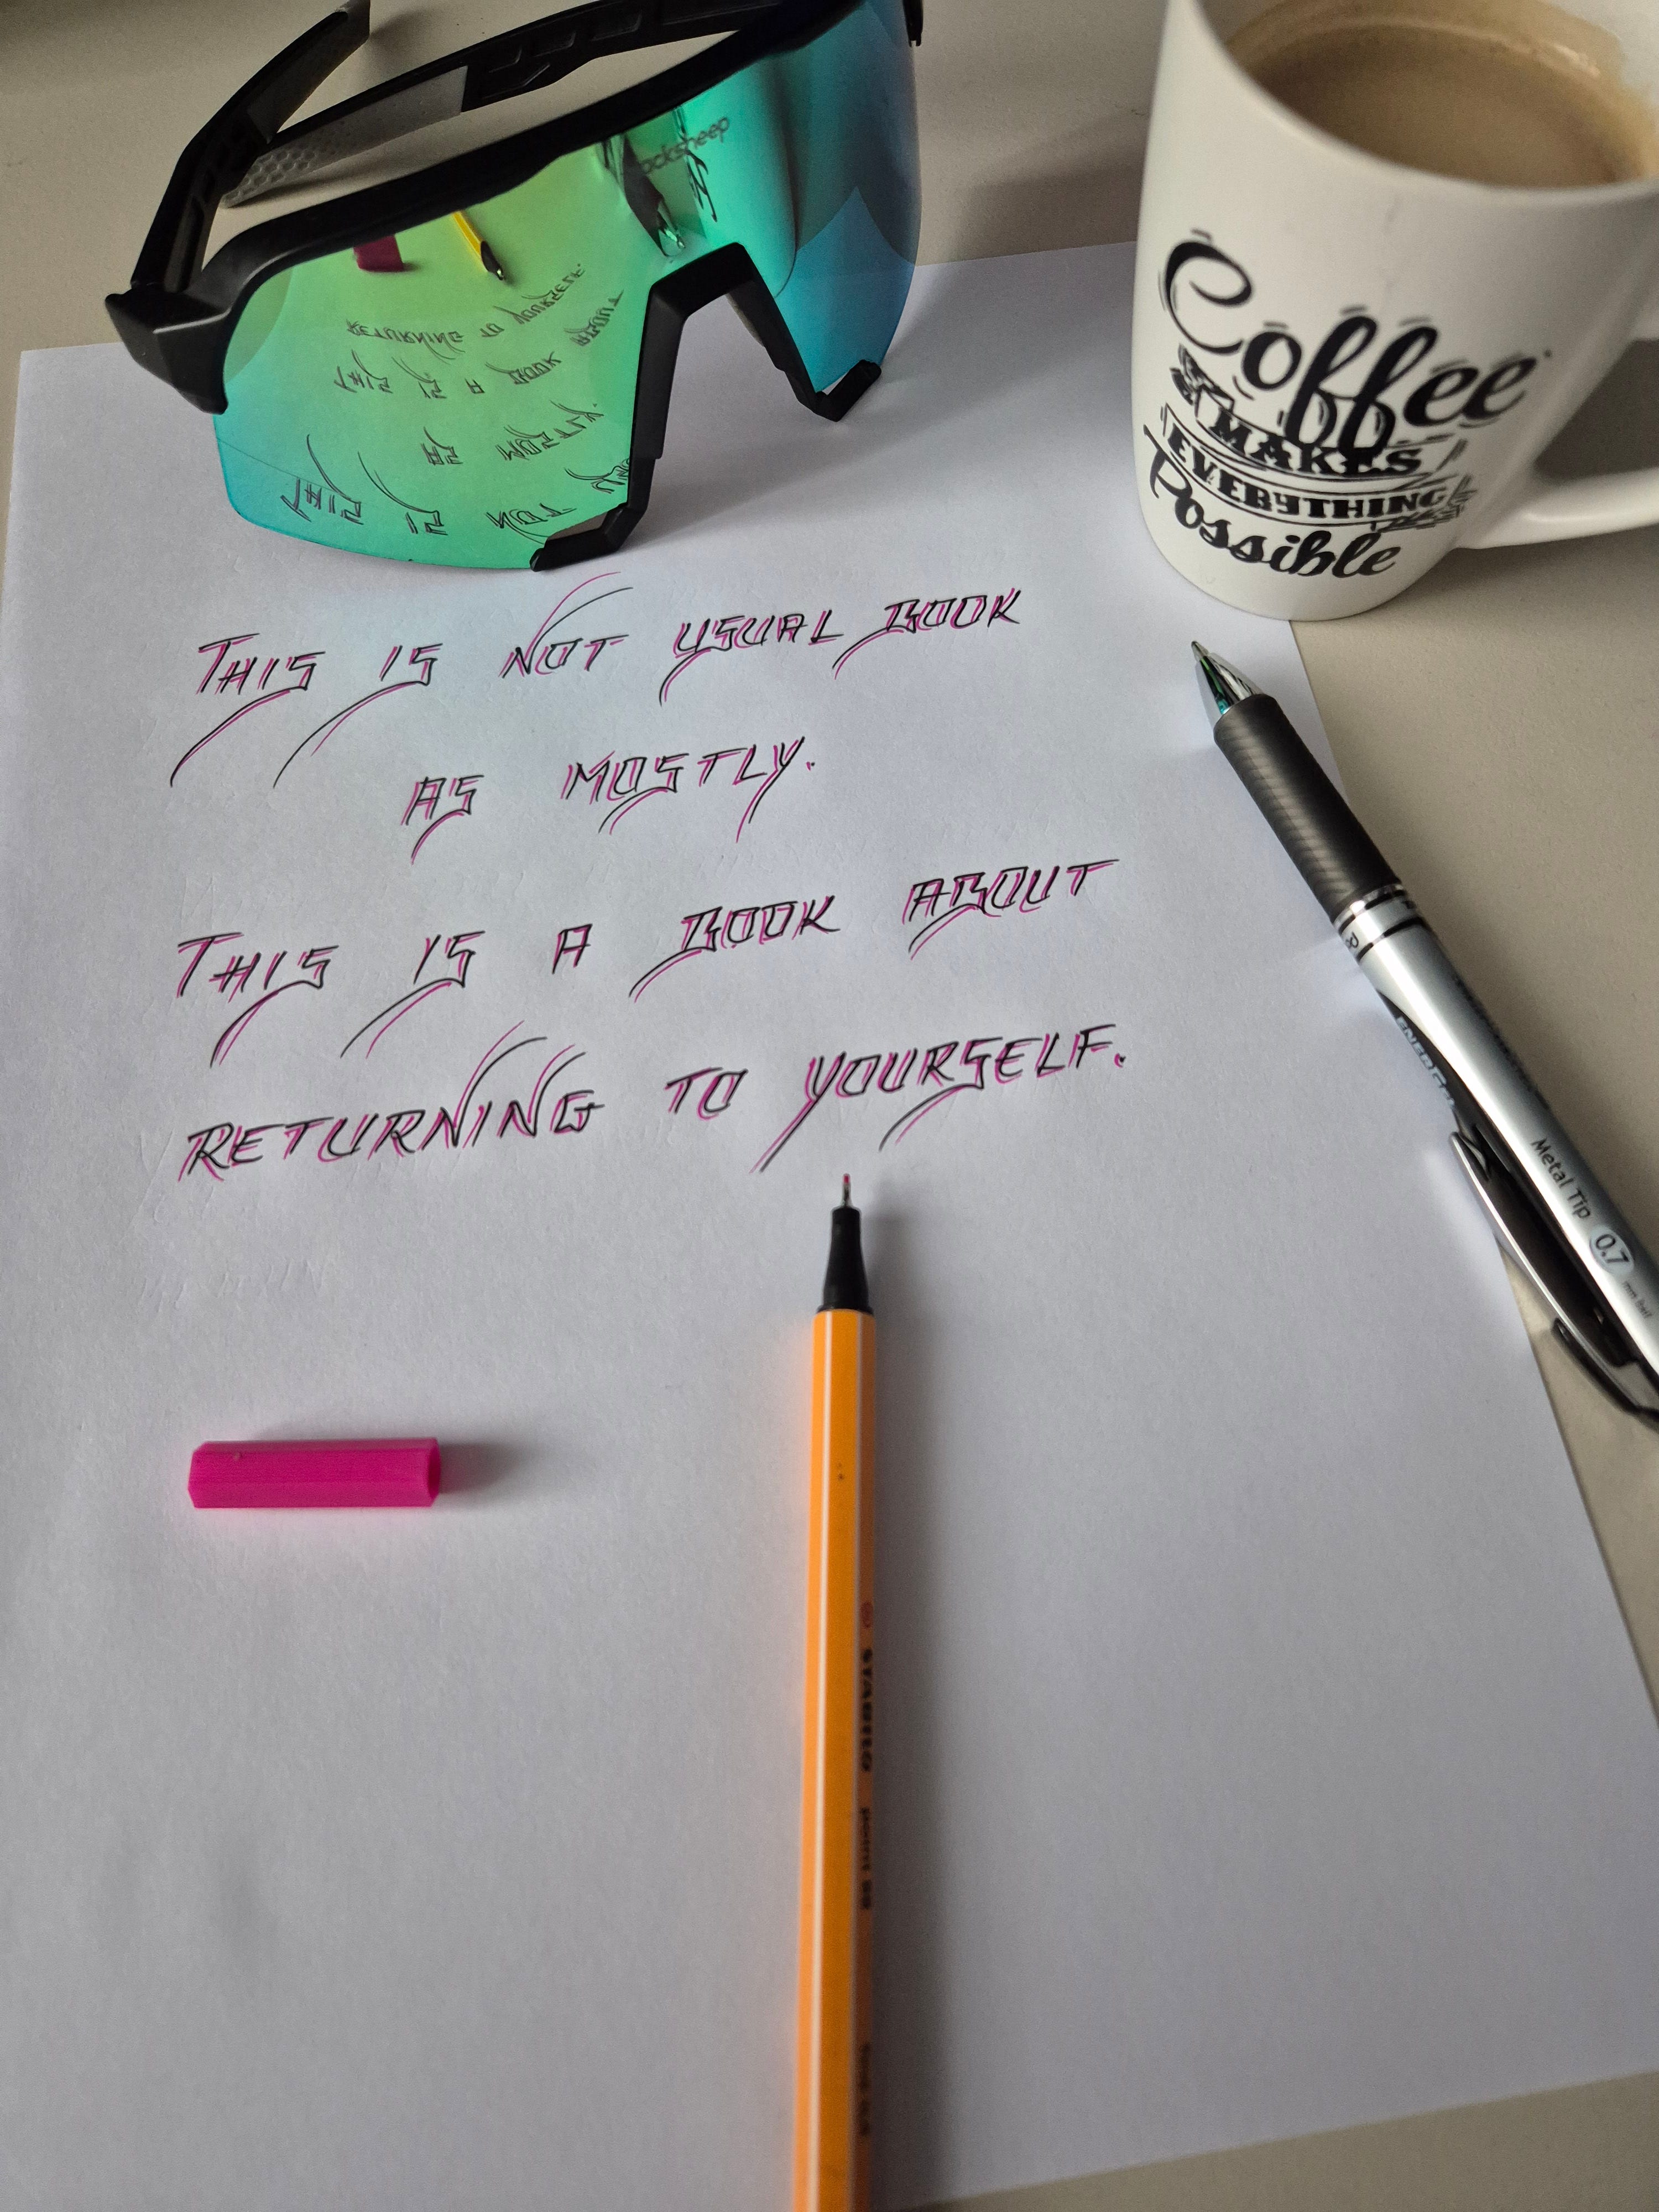 THIS IS NOT USUAL BOOK
AS MOSTLY.
THIS IS A BOOK ABOUT
RETURNING TO YOURSELF.
Coffee
MAKES
EVERYTHING
Possible
R
ENERGEL
Metal Tip 0.7 mm ball
STABILO point 88